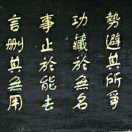 勢避其所爭
功藏於無名
事止於能去
言刪其無用